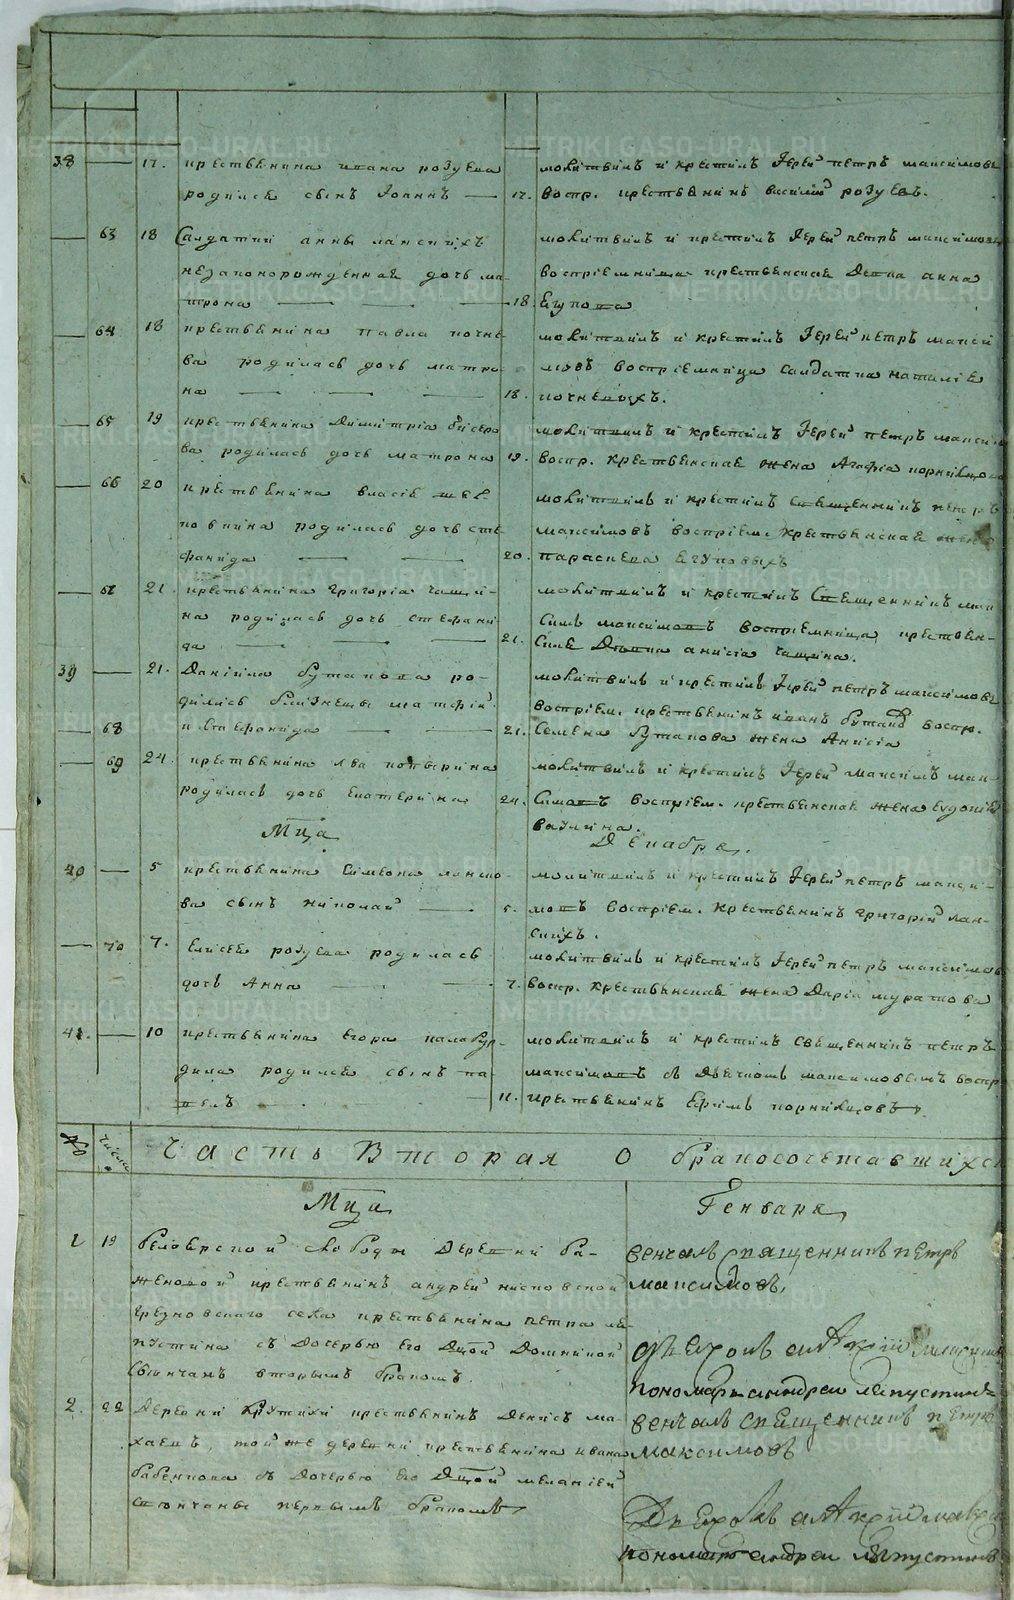 38 — 17. крестьянина ивана розуева
родился сынъ Іоаннъ —
молитвилъ и крестилъ Іерей петръ максимовъ
17. воспр. крестьянинъ василий розуевъ.
63 18 Салдатки анны ланскихъ
незаконорожденная дочь ма-
трона —
молитвилъ и крестилъ Іерей петръ максимовъ
воспріемница крестьянская Девка анна
18. Егупова
64 18 крестьянина павла почке-
ва родилась дочь матро-
на —
молитвилъ и крестилъ Іерей петръ макси
мовъ воспріемница салдатка наталія
18. почкевыхъ.
65 19 крестьянина Димитріа бисеро
ва родилась дочь матрона
молитвилъ и крестилъ Іерей петръ макси
19. воспр. крестьянская жена Агафіа
66 20 крестьянина власія
родилась дочь сте-
фанида —
молитвилъ и крестилъ священникъ петръ
максимовъ воспріем. крестьянская жена
20. параскева Егуповыхъ
67 21. крестьянина григоріа чащи-
на родилась дочь стефани
да —
молитвилъ и крестилъ Священникъ мак
симъ максимовъ воспріемница крестьян-
21. ская Девка анисіа чащина.
39 — 21. Даніила бутакова ро-
дились близнецы матфій
68 и Стефанида —
молитвилъ и крестилъ Іерей петръ максимовъ
воспріем. крестьянинъ иванъ бутаковъ воспр.
21. Семена бутакова жена Анисіа
69 24. крестьянина лва
родилась дочь екатерина
молитвилъ и крестилъ Іерей максимъ мак-
24. симовъ воспріем. крестьянская жена евдокія
ваулина.
Мца Декабря.
40 — 5 крестьянина Симеона ланско-
ва сынъ николай —
молитвилъ и крестилъ Іерей петръ макси-
5. мовъ воспріем. крестьянинъ григорій лан-
скихъ.
70 7. Елисея розуева родилась
дочь Анна —
молитвилъ и крестилъ Іерей петръ максимовъ
7. воспр. крестьянская жена Даріа муратова
41. — 10 крестьянина егора калабур-
дина родился сынъ па-
велъ
молитвилъ и крестилъ священникъ петръ
максимовъ с дьячкомъ максимовымъ воспр
11. крестьянинъ Ефимъ корниловъ
№ числа Часть Вторая О бракосочетавшихся
Мца Генваря
1 19 белоярской слободы деревни ба-
женовой крестьянинъ андрей
грязновскаго села крестьянина петра ла-
пустина съ дочерью его Дцой Домникой
свенчанъ вторымъ бракомъ.
венчалъ священникъ петръ
максимовъ,
дьячокъ алАкѳій
пономарь андреи лапустинъ
2. 22 деревни Крутихи крестьянинъ денисъ ма-
хаевъ, той же деревни крестьянина ивана
бабенкова съ дочерью его Дцой меланией
свенчаны первымъ бракомъ
венчалъ священникъ петръ
максимовъ
пономарь андреи лапустинъ